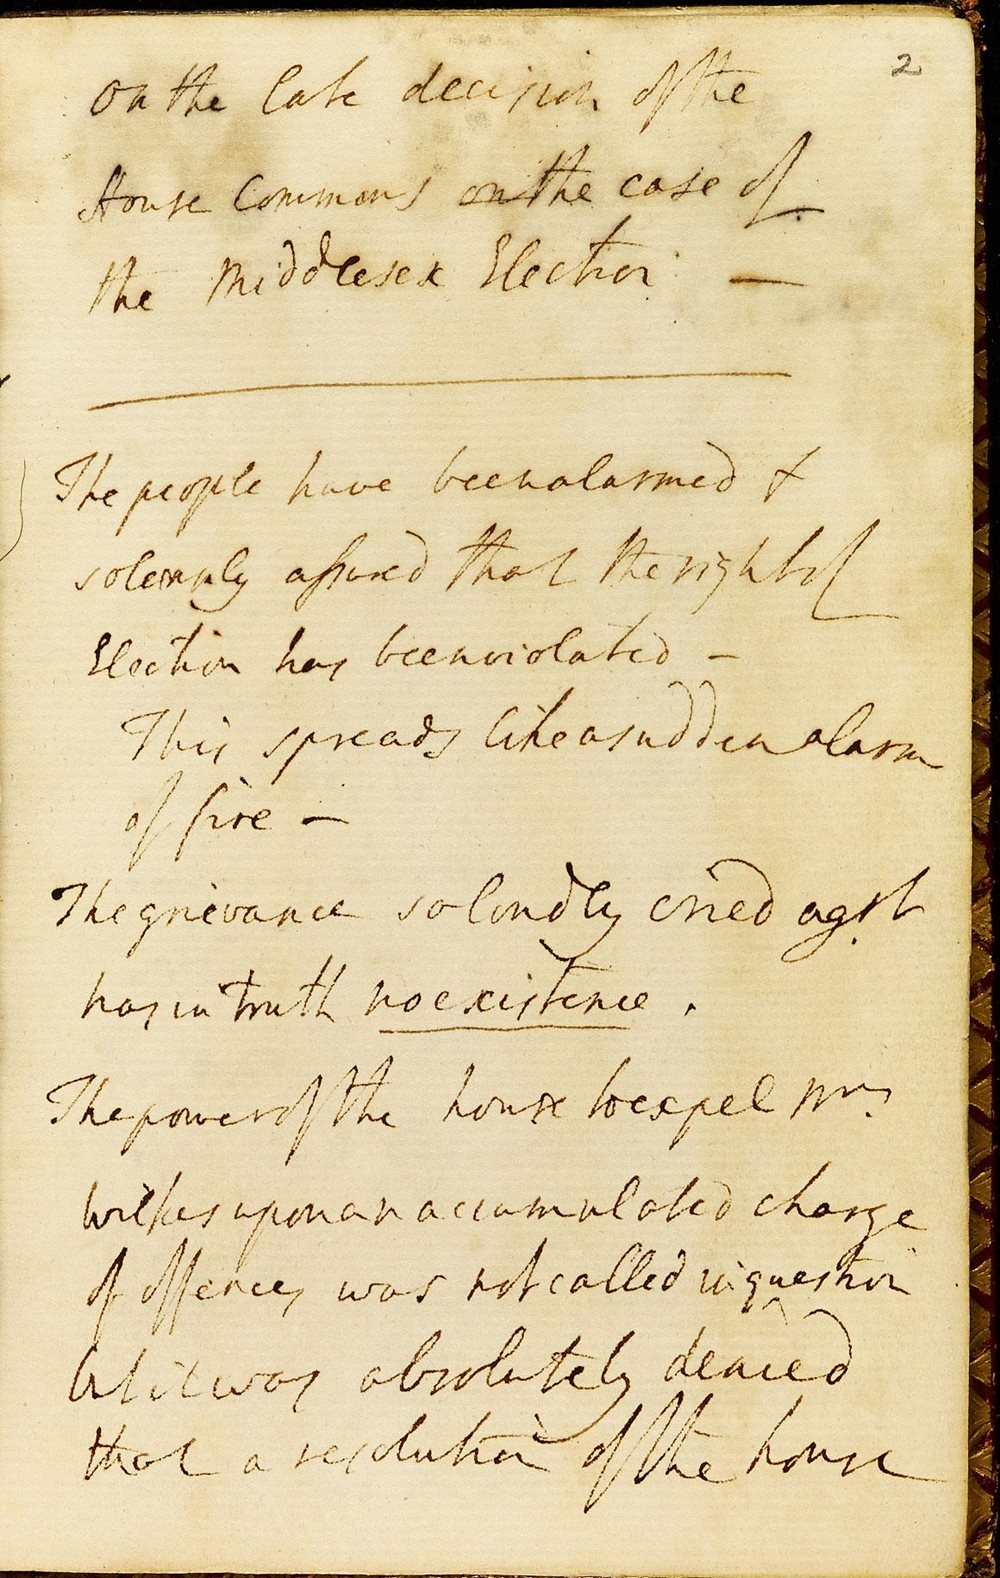 2
on the late decision of the
House Commons on the case of
the Middlesex Election —
The people have been alarmed &
solemnly assured that the right of
Election has been violated —
This spreads like a sudden alarm
of fire —
The grievance so loudly cried agst
has in truth no existence.
The power of the house to expel Mr
Wilkes upon an accumulated charge
of offences was not called in question
but it was absolutely denied
that a resolution of the house